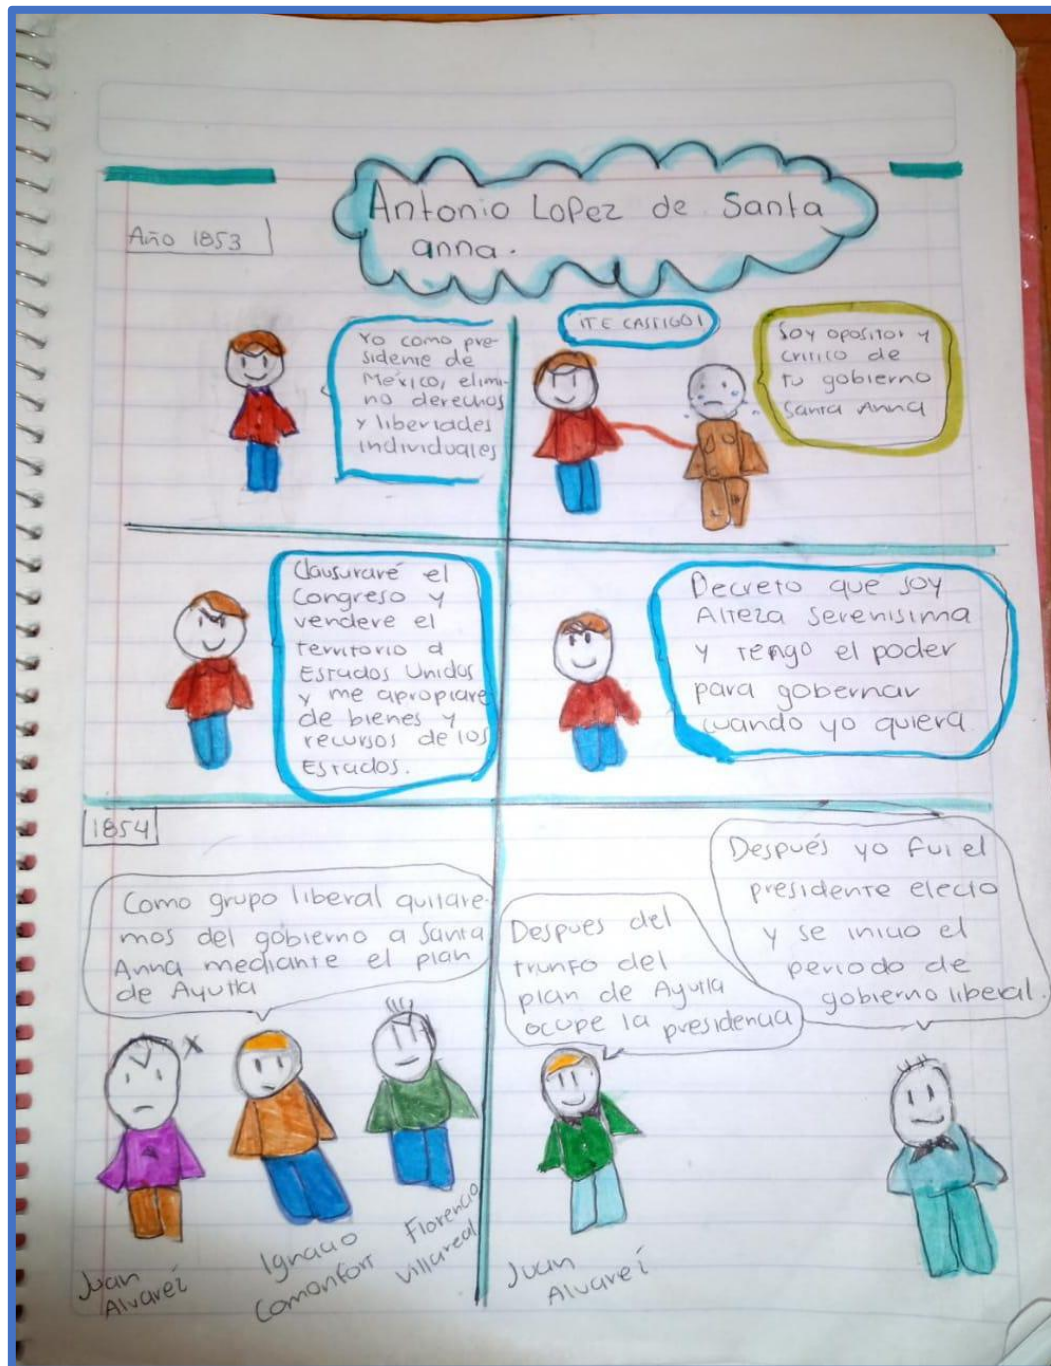 Antonio Lopez de Santa
anna.
Año 1853
Yo como pre-
sidente de
México, elimi-
no derechos
y libertades
individuales
¡TE CASTIGO!
Soy opositor y
critico de
tu gobierno
Santa Anna
Clausuraré el
Congreso y
vendere el
territorio a
Estados Unidos
y me apropiare
de bienes y
recursos de los
Estados.
Decreto que soy
Alteza Serenisima
y tengo el poder
para gobernar
cuando yo quiera
1854
Como grupo liberal quitare-
mos del gobierno a Santa
Anna mediante el plan
de Ayutla
Juan
Alvarez
Ignacio
Comonfort
Florencio
Villareal
Despues del
triunfo del
plan de Ayutla
ocupe la presidencia
Después yo fui el
presidente electo
y se inicio el
periodo de
gobierno liberal.
Juan
Alvarez